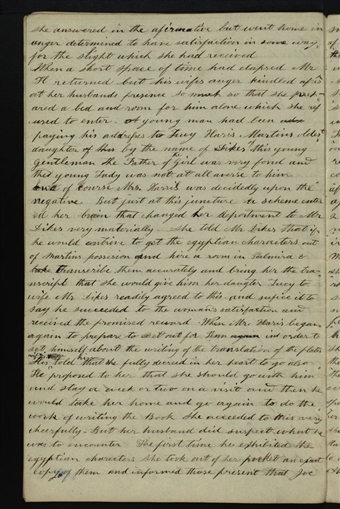 she answered in the afirmative but went home in
anger determined to have satisfaction in some way
for the slight which she had received
When a short space of time had elapsed Mr
H returned but his wifes anger kindled afresh
at her husbands presence so much so that she prep-
ared a bed and room for him alone which she ref
used to enter A young man had been
paying his addresses to Lucy Haris Martins oldest
daughter by the name of Dikes this young
gentleman the Father of Girl was very fond and
the young Lady was not at all averse to him
but of course Mrs Harris was decidedly upon the
negative But just at this juncture a scheme enter
ed her brain that changed her deportment to Mr
Dikes very materially she told Mr Dikes that if
he would contrive to get the egyptian characters out
of Martins possesion and hire a room in Palmira &
transcribe them accurately and bring her the tran
script that she would give him her daughter Lucy to
wife Mr Dikes readily agreed to this and sufice it to
say he succeeded to the womans satisfaction and
received the promised reward When Mr Haris began
again to prepare to set out for Penn again in order to
set himself about the writing of the translation of the plates
Her told that he fully decred in her heart to go also
He proposed to her that she should go with him
and stay a week or two on a visit and then he
would take her home and go again to do the
work of writing the Book she acceeded to this very
cheerfully But her husband did suspect what he
was to encounter The first time he exhibited the
egyptian characters she took out of her pocket an exact
copy of them and informed those present that Joe